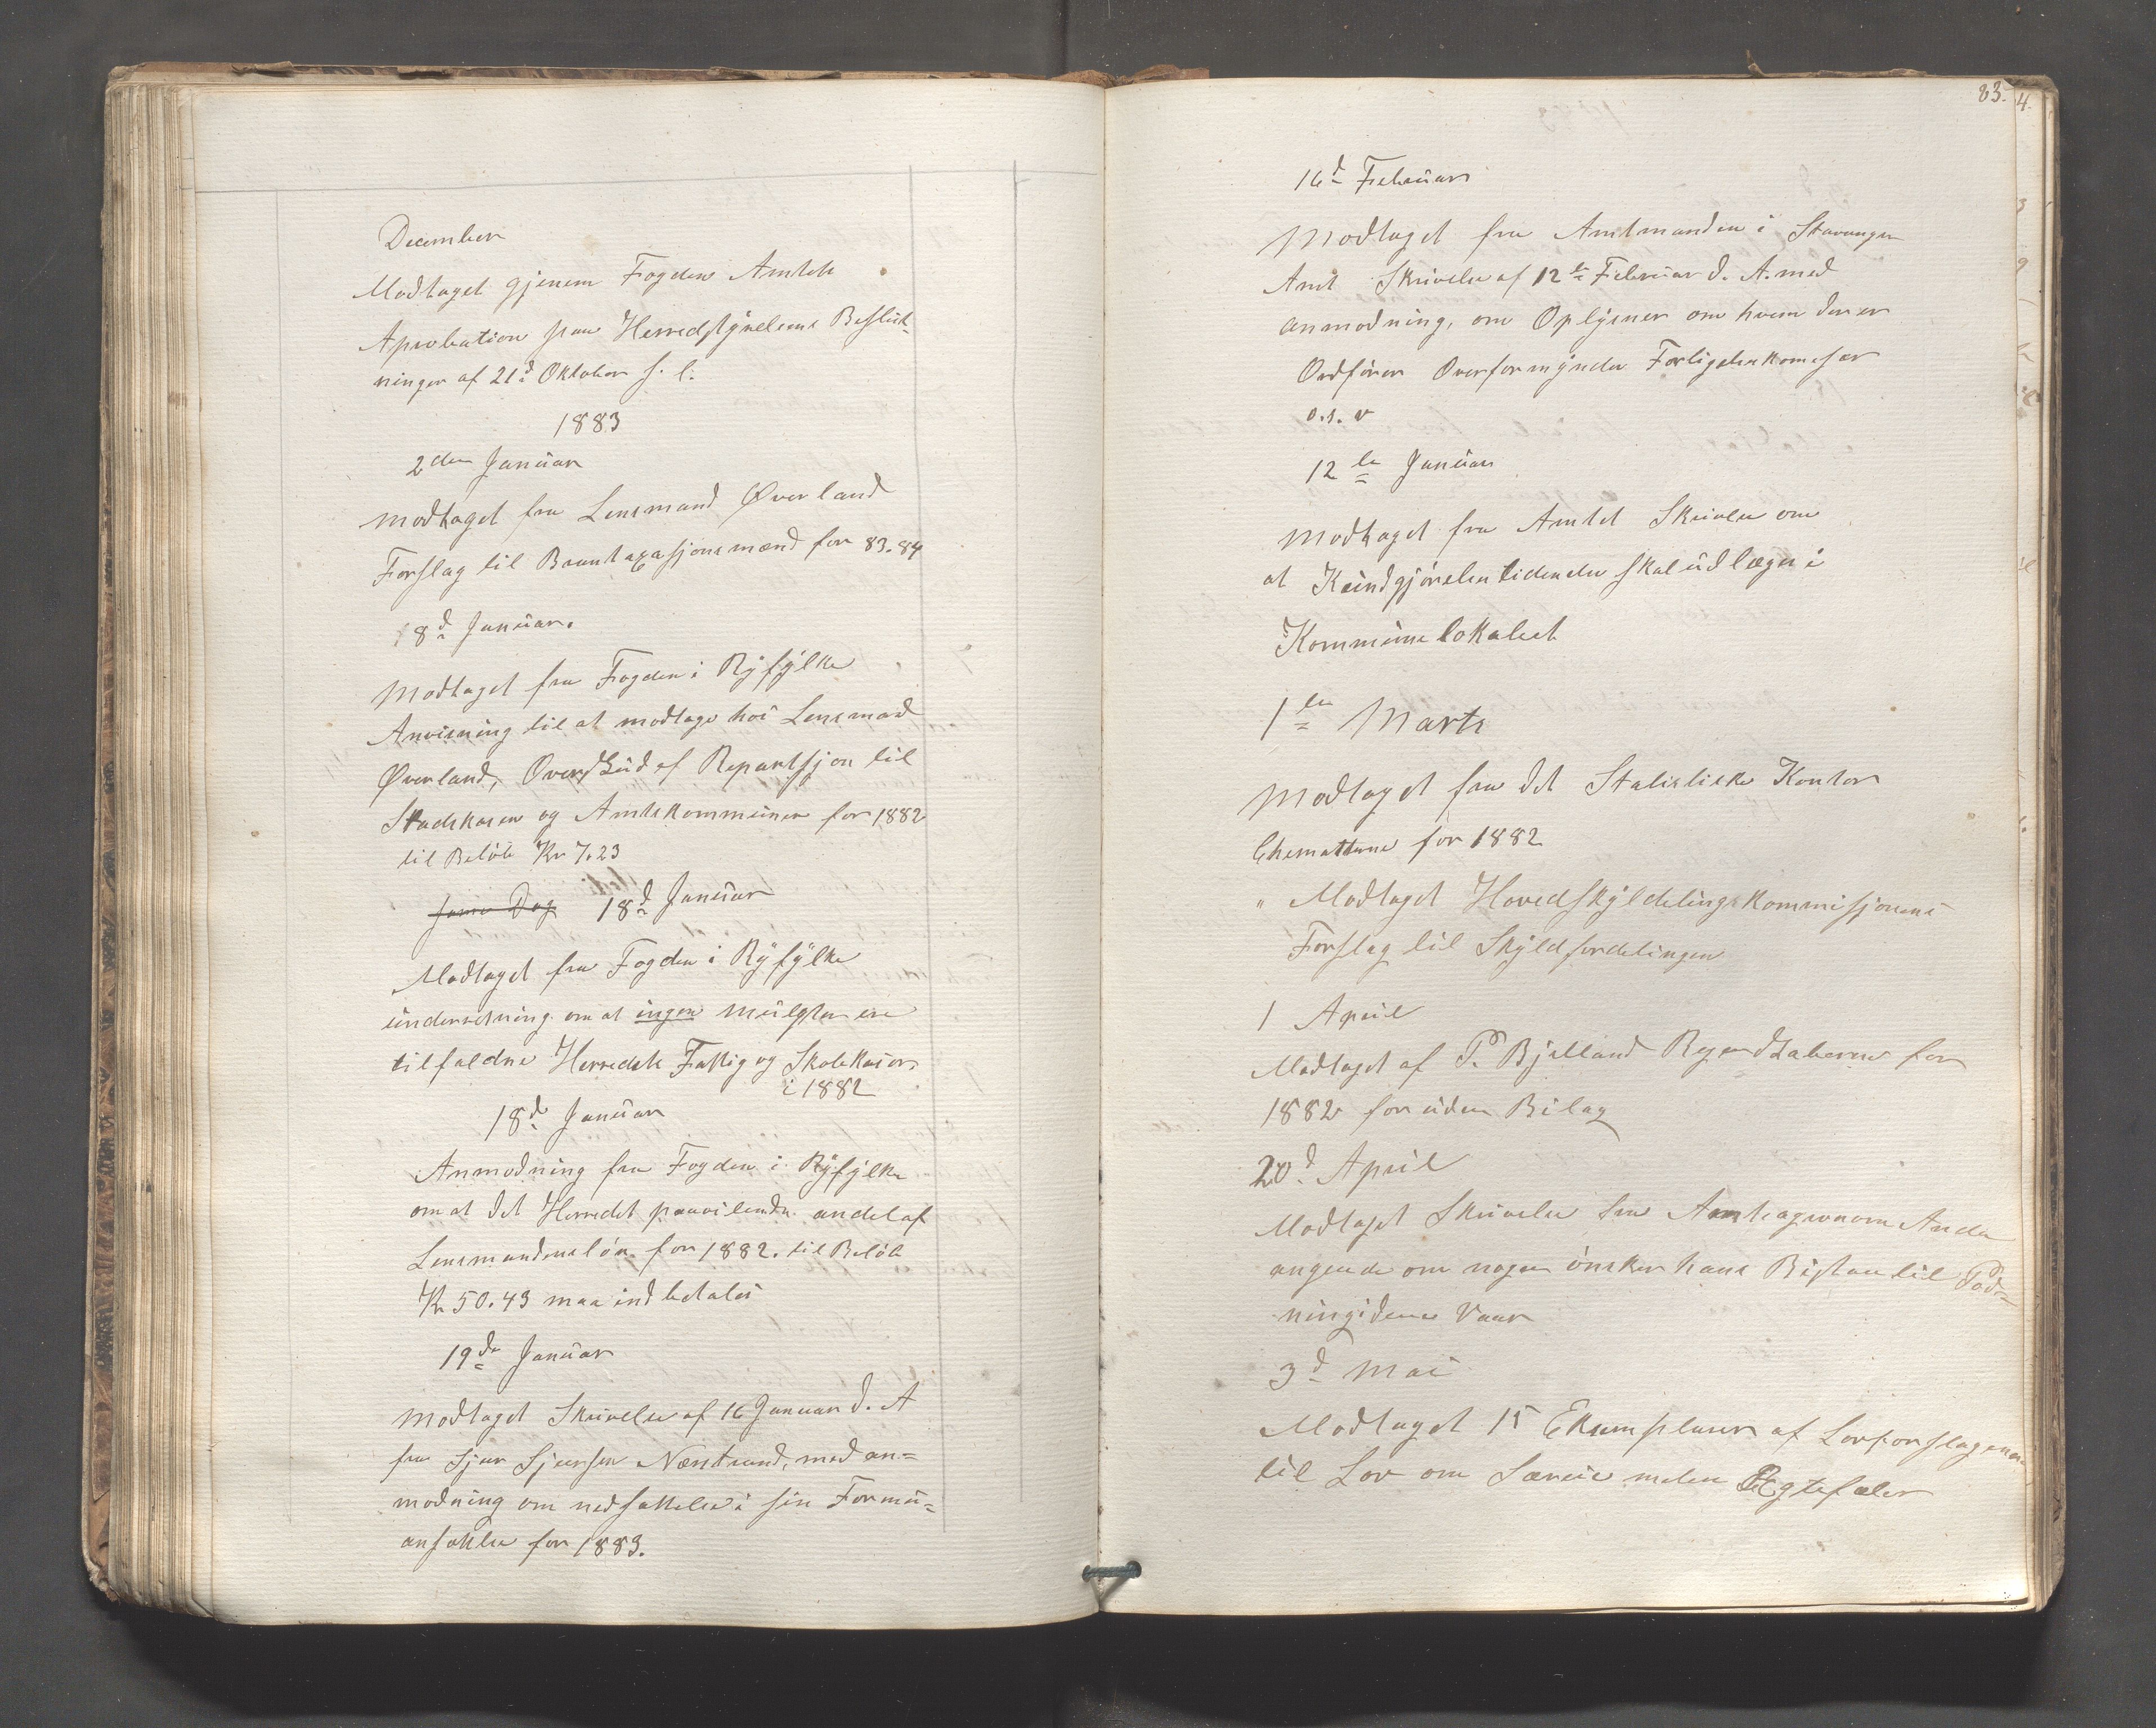 December
Modtaget gjenem Fogden Amtets
Aprobation paa Herredstyrelsens Beslut-
ninger af 21d Oktober f. l.
1883
2den Januar
Modtaget fra Lensmand Øverland
Forslag til Branntaxasjonsmænd for 83.84
18d Januar.
Modtaget fra Fogden i Ryfylke
Anvisning til at modtage hos Lensmand
Øverland, Overskud af Repartsjon til
Stadskasen og Amtskommunen for 1882
til Beløb Kr 7.23
Same Dag 18d Januar
Modtaget fra Fogden i Ryfylke
underretning om at ingen Mulgter ere
tilfaldne Herredets Fattig og Skolekasser
i 1882
18d Januar
Anmodning fra Fogden i Ryfylke
om at det Herredet paavilende andel af
Lensmandensløn for 1882. til Beløb
Kr 50.43 maa indbetales
19de Januar
Modtaget Skrivelse af 16 Januar d. A
fra Sjur Sjursen Nærstrand, med an=
modning om nedsættelse i sin Formu=
ansættelse for 1883.
83. 4.
16d Februar
Modtaget fra Amtmanden i Stavanger
Amt Skrivelse af 12te Februar d. A. med
anmodning, om Oplysner om hvem der er
Ordfører Overformynder Forligelseskomesær
o.s.v
12te Januar
Modtaget fra Amtet Skrivelse om
at Kundgjørelsestidende skal udlæges i
Kommunelokalest
1te Marts
Modtaget fra det Statistiske Kontor
Chemattene for 1882
" Modtaget Hovedskyldelingskommisjonens
Forslag til Skyldfordelingen
1 April
Modtaget af P. Bjelland Regendskaberne for
1882 foruden Bilag
20d April
Modtaget Skrivelse fra Amtsagronom Anda
angende om nogen ønsker hans Bistan til Pod=
ning i dene Vaar
3d Mai
Modtaget 15 Eksemplarer af Lovforslagene
til Lov om Særeie melen Ægtefæler